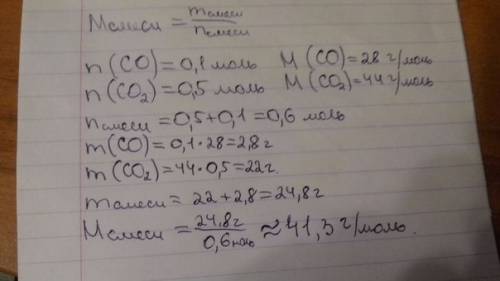 Mсмеси = mсмеси/nсмеси
n(CO)=0,1 моль M(CO)=28 г/моль
n(CO₂)=0,5 моль M(CO₂)=44 г/моль
nсмеси=0,5+0,1=0,6 моль
m(CO)=0,1·28=2,8г
m(CO₂)=44·0,5=22г.
mсмеси= 22+2,8=24,8г
Mсмеси = 24,8г/0,6моль ≈41,3 г/моль.